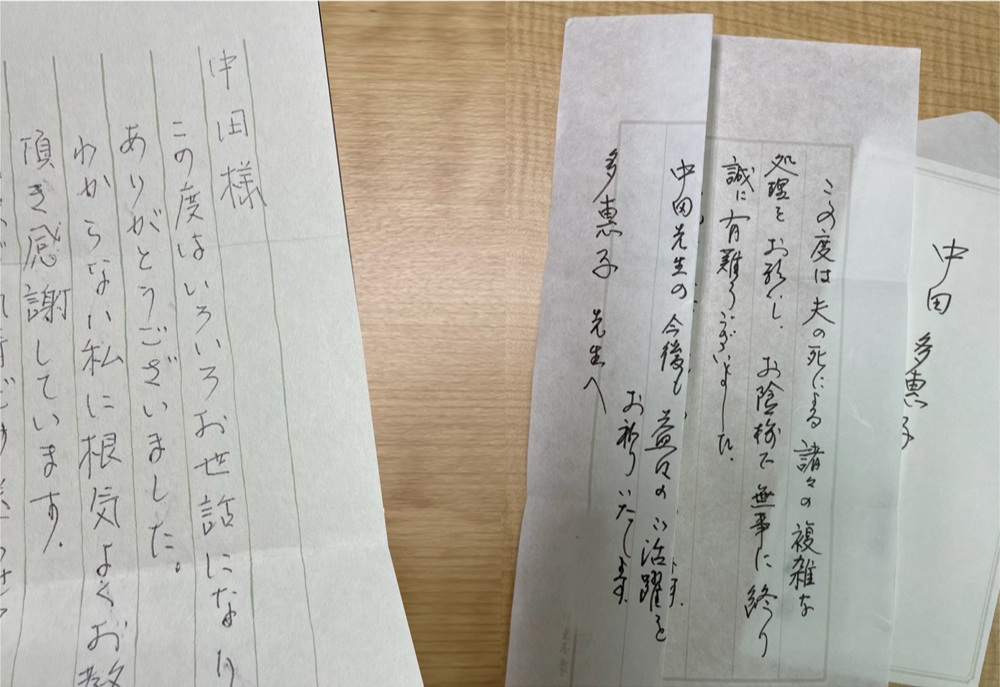 中田様
この度はいろいろお世話になり
ありがとうございました。
わからない私に根気よくお教
頂き感謝しています。
この度は夫の死による諸々の複雑な
処理をお願いし、お陰様で無事に終り
誠に有難うございました。
中田先生の今後も益々のご活躍を
お祈りいたします。
多恵子先生へ
中田多恵子